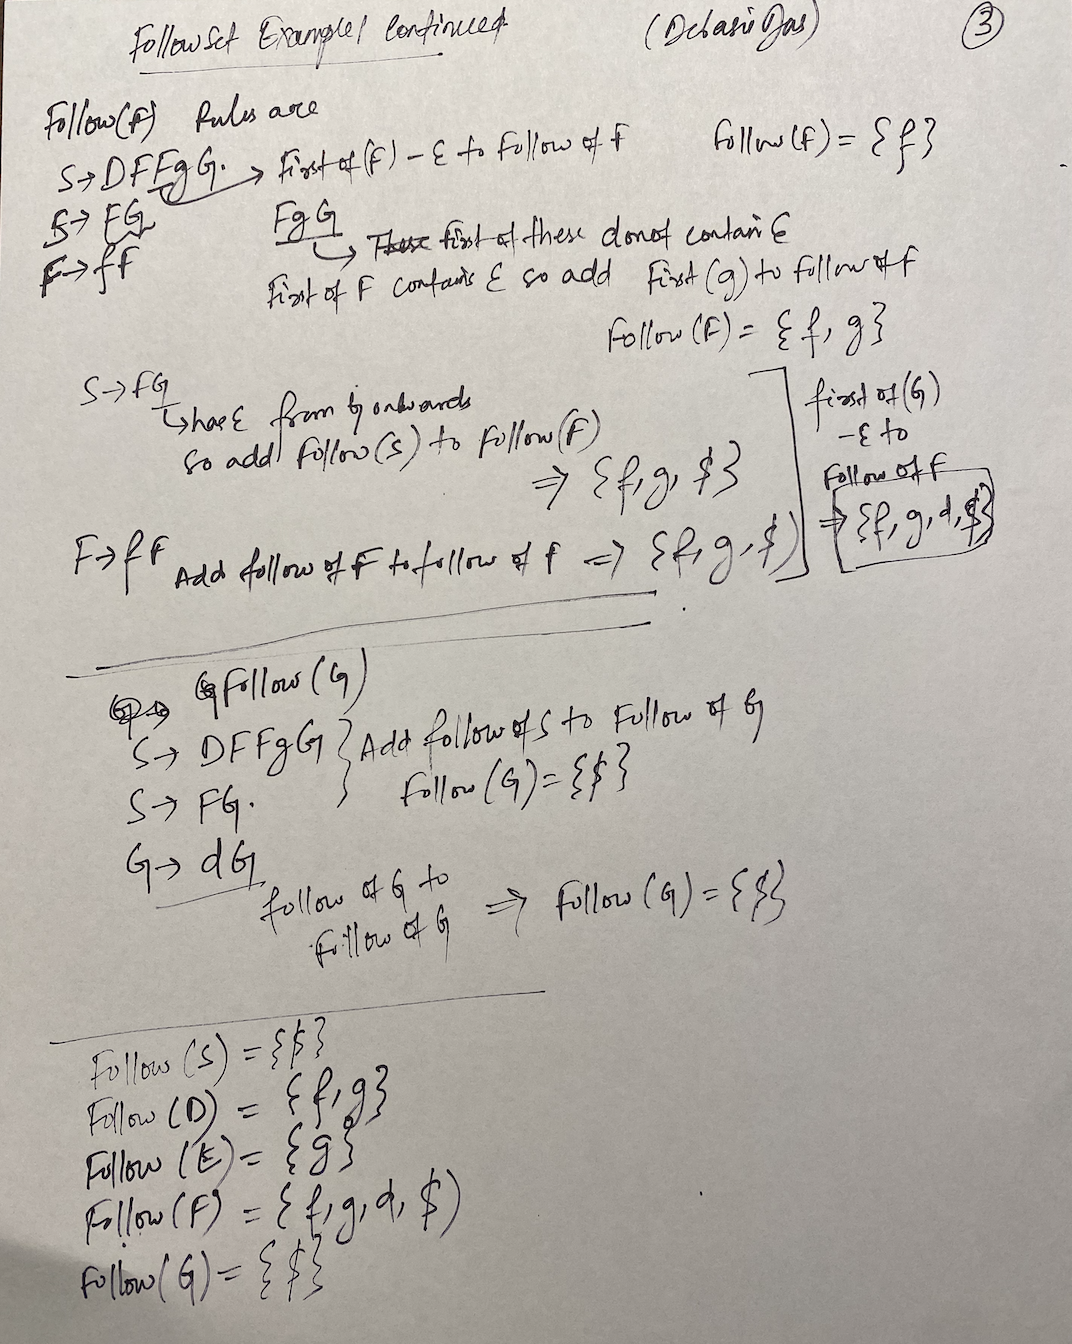 Follow Set Example 1 Continued (Debasis Das) 3
Follow(F) Rules are
S→DFFgG. → First of (F) - ε to Follow of F Follow(F) = {f}
S→ FG FgG
→ first of these donot contain ε
F→fF
First of F contains ε so add First(g) to Follow of F
Follow(F) = {f, g}
S→FG
↳ has ε from G onwards
so add Follow(S) to Follow(F)
⇒ {f, g, $}
F→fF Add follow of F to follow of F ⇒ {f, g, $}
first of (G)
-ε to
Follow of F
⇒ {f, g, d, $}
Follow(G)
S→ DFFgG } Add follow of S to Follow of G
S→ FG. Follow(G) = {$}
G→ dG
follow of G to
Follow of G ⇒ Follow(G) = {$}
Follow(S) = {$}
Follow(D) = {f, g}
Follow(E) = {g}
Follow(F) = {f, g, d, $)
Follow(G) = {$}